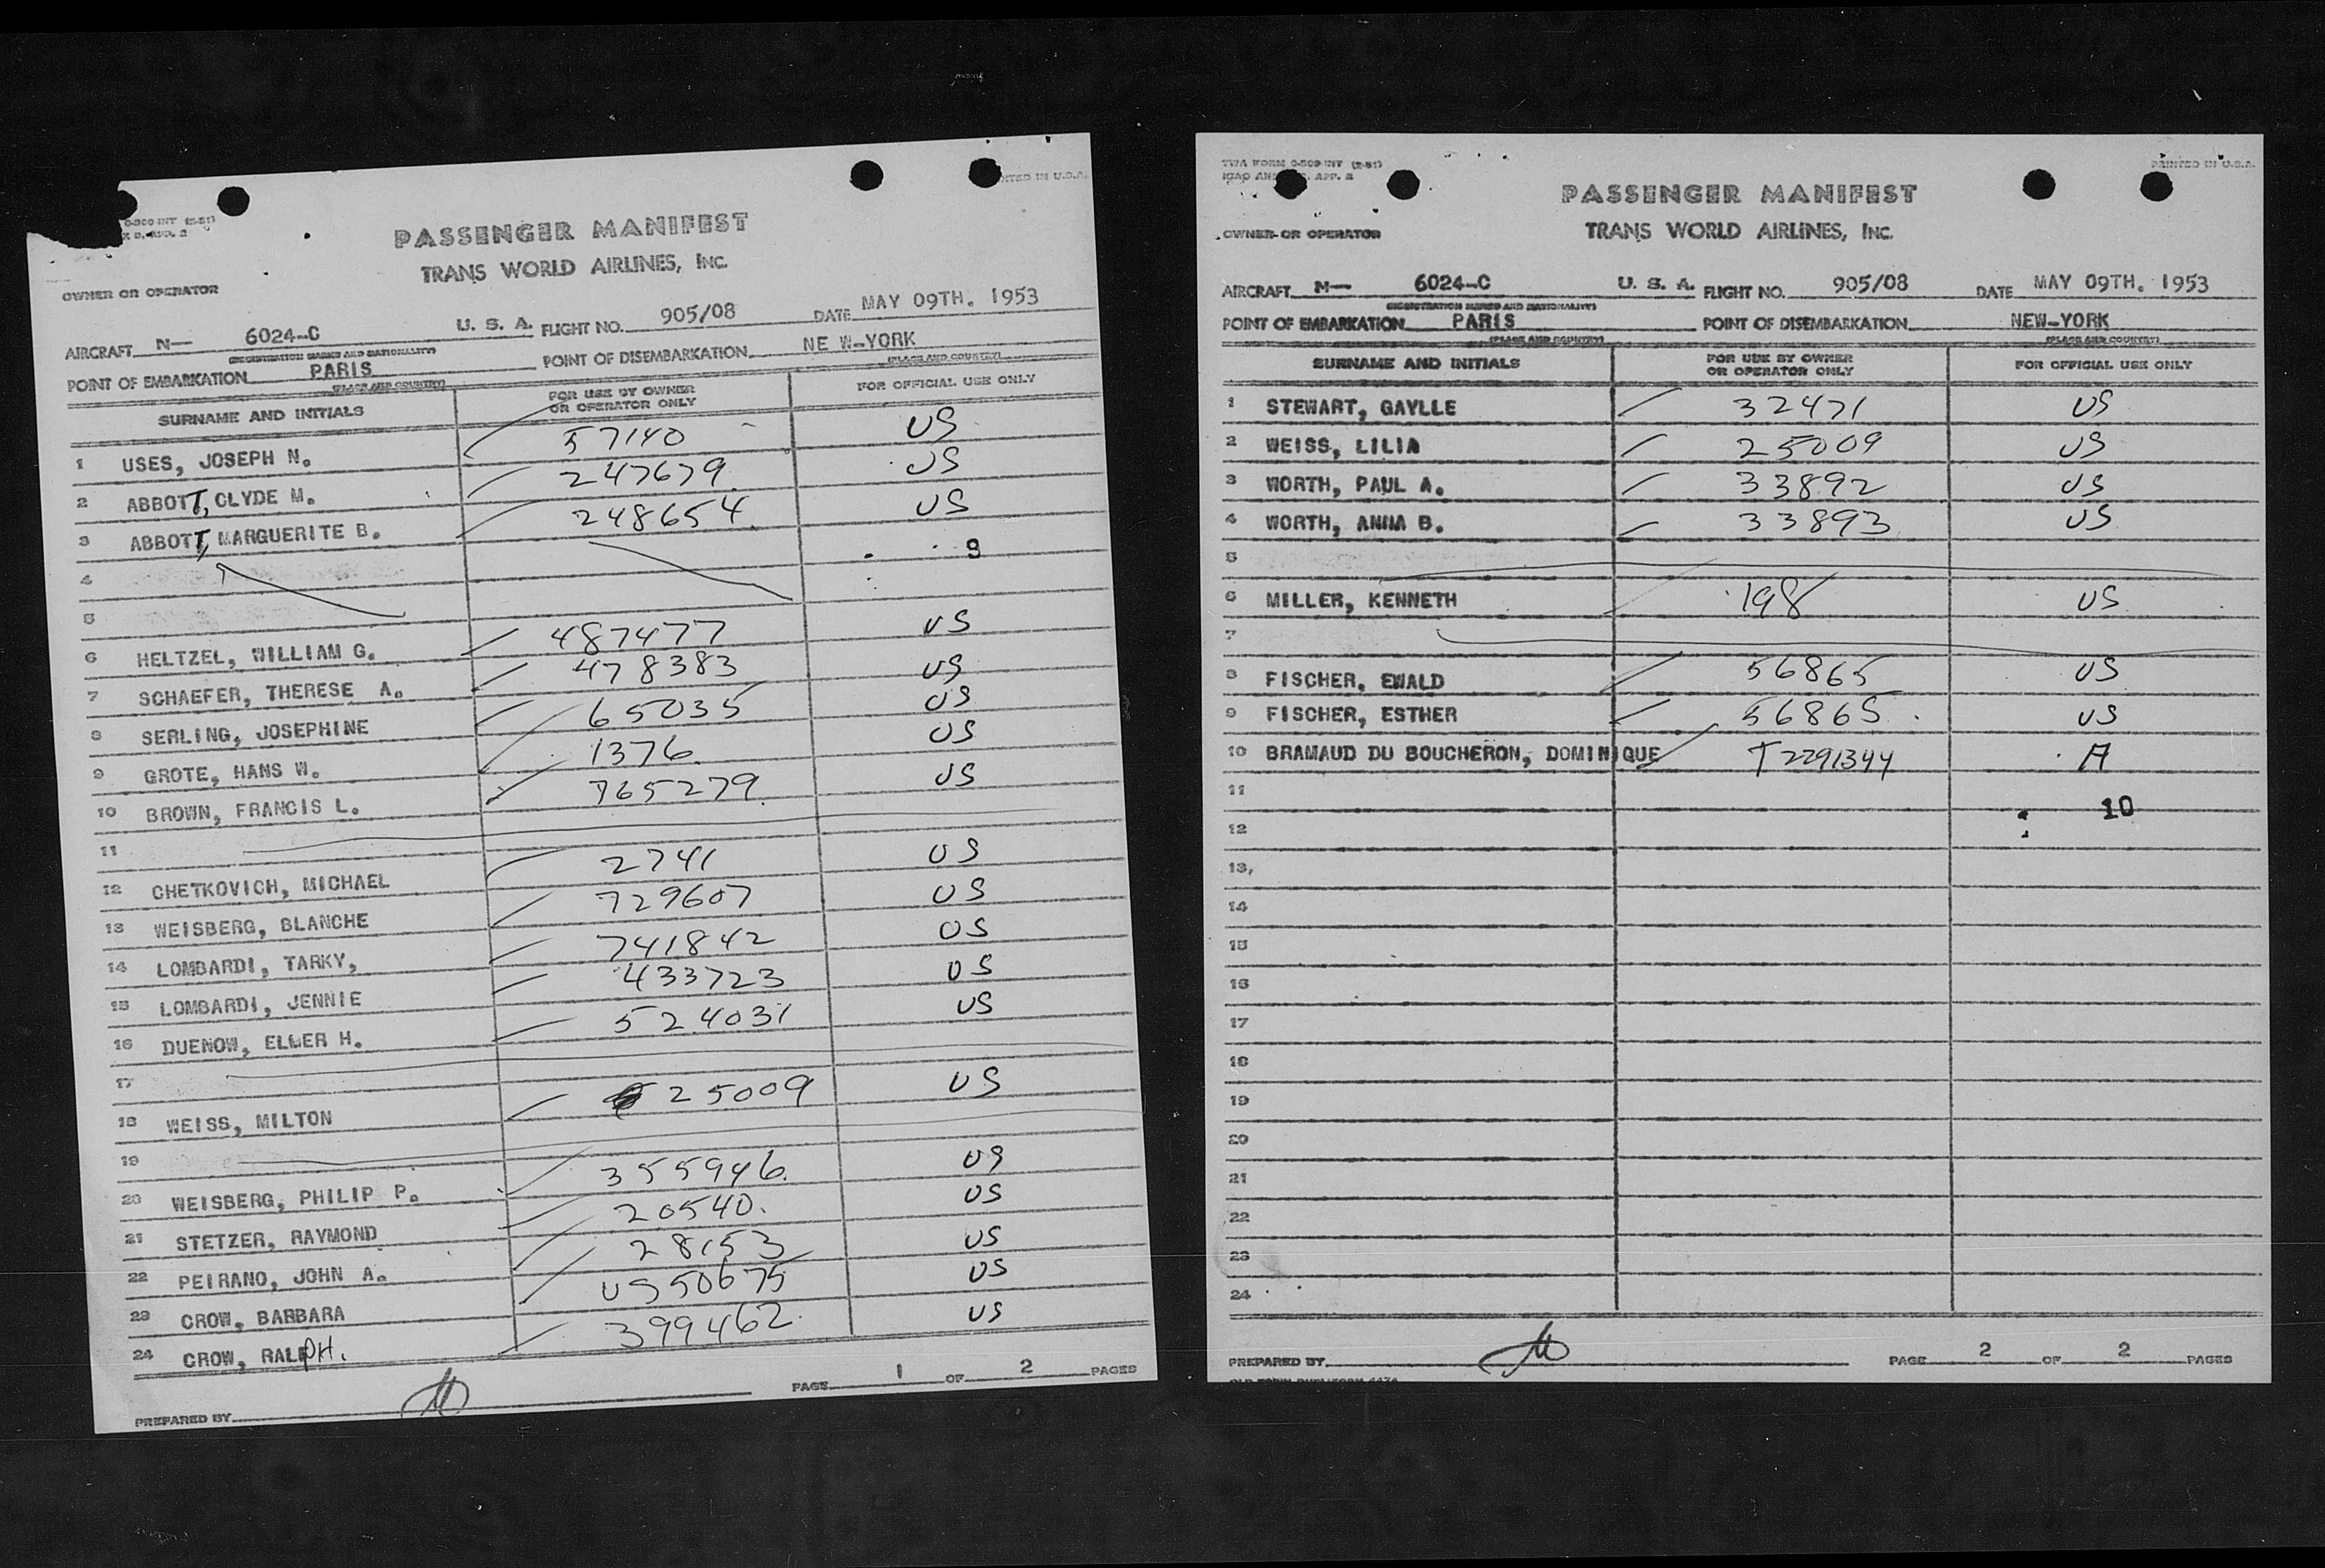 0-500-INT (2-51)
PRINTED IN U.S.A.
PASSENGER MANIFEST
TRANS WORLD AIRLINES, INC.
OWNER OR OPERATOR
AIRCRAFT N— 6024-C U. S. A. FLIGHT NO. 905/08 DATE MAY 09TH. 1953
(REGISTRATION MARKS AND NATIONALITY)
POINT OF EMBARKATION PARIS POINT OF DISEMBARKATION NE W-YORK
(PLACE AND COUNTRY) (PLACE AND COUNTRY)
SURNAME AND INITIALS FOR USE BY OWNER OR OPERATOR ONLY FOR OFFICIAL USE ONLY
1 USES, JOSEPH N. 57140 US
2 ABBOTT, CLYDE M. 247679 US
3 ABBOTT, MARGUERITE B. 248654 US
4 9
5
6 HELTZEL, WILLIAM G. 487477 US
7 SCHAEFER, THERESE A. 478383 US
8 SERLING, JOSEPHINE 65035 US
9 GROTE, HANS W. 1376 US
10 BROWN, FRANCIS L. 765279 US
11
12 CHETKOVICH, MICHAEL 2741 US
13 WEISBERG, BLANCHE 729607 US
14 LOMBARDI, TARKY, 741842 US
15 LOMBARDI, JENNIE 433723 US
16 DUENOW, ELMER H. 524031 US
17
18 WEISS, MILTON 25009 US
19
20 WEISBERG, PHILIP P. 355946 US
21 STETZER, RAYMOND 20540 US
22 PEIRANO, JOHN A. 28153 US
23 CROW, BARBARA US50675 US
24 CROW, RALPH. 399462 US
PREPARED BY PAGE 1 OF 2 PAGES
TWA FORM 0-500-INT (2-51)
PRINTED IN U.S.A.
ICAO APP. 2
PASSENGER MANIFEST
TRANS WORLD AIRLINES, INC.
OWNER OR OPERATOR
AIRCRAFT N— 6024-C U. S. A. FLIGHT NO. 905/08 DATE MAY 09TH. 1953
(REGISTRATION MARKS AND NATIONALITY)
POINT OF EMBARKATION PARIS POINT OF DISEMBARKATION NEW-YORK
(PLACE AND COUNTRY) (PLACE AND COUNTRY)
SURNAME AND INITIALS FOR USE BY OWNER OR OPERATOR ONLY FOR OFFICIAL USE ONLY
1 STEWART, GAYLLE 32471 US
2 WEISS, LILIA 25009 US
3 WORTH, PAUL A. 33892 US
4 WORTH, ANNA B. 33893 US
5
6 MILLER, KENNETH 198 US
7
8 FISCHER, EWALD 56865 US
9 FISCHER, ESTHER 56865 US
10 BRAMAUD DU BOUCHERON, DOMINIQUE T2291344 A
11 10
12
13,
14
15
16
17
18
19
20
21
22
23
24
PREPARED BY PAGE 2 OF 2 PAGES